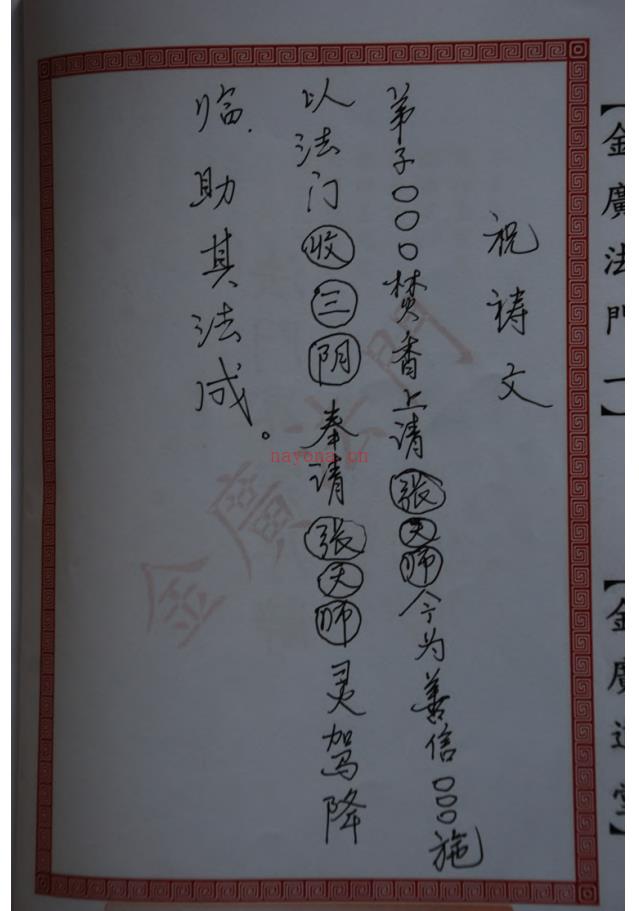 【金廣法門一】
【金廣道堂】
祝祷文
弟子〇〇〇焚香上请张天师今为善信〇〇〇施
以法门收三阴奉请张天师灵驾降
临.助其法成。
金廣法門
nayona.cn